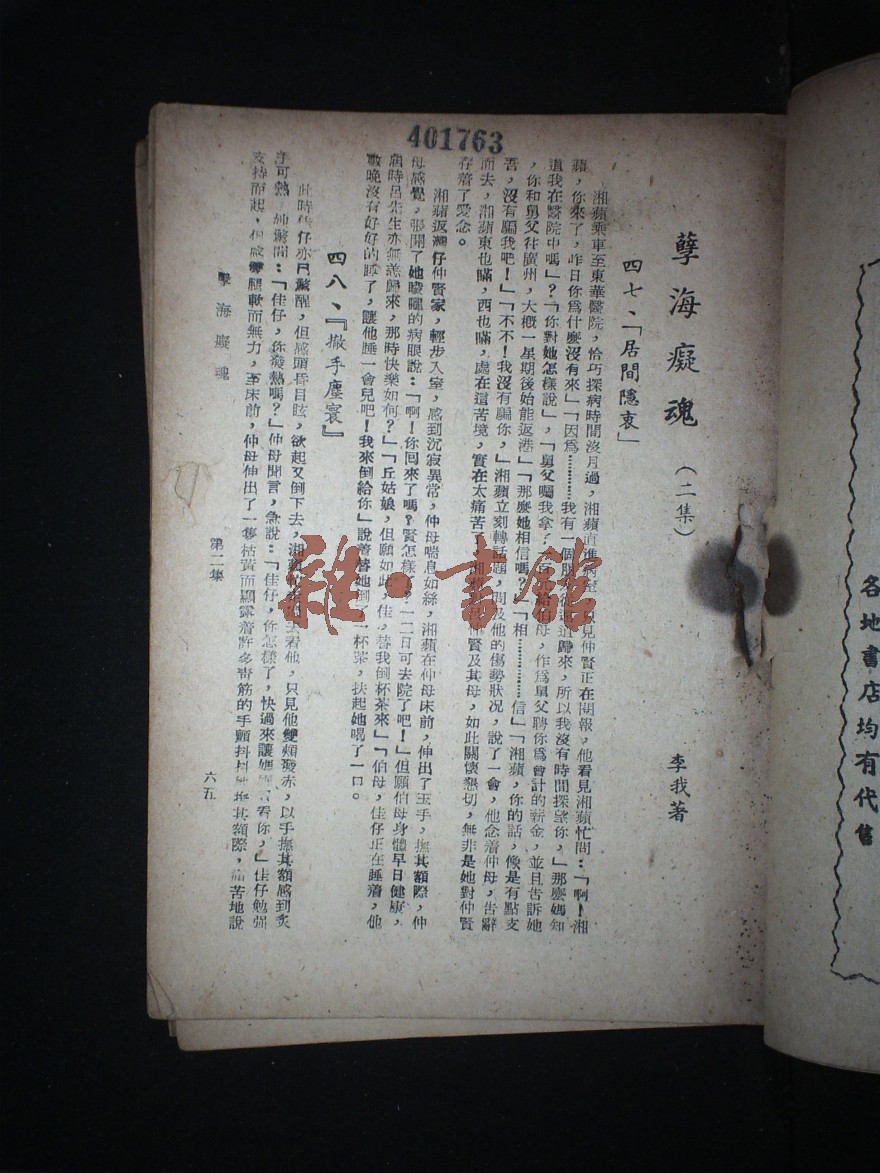 各地書店均有代售
401763
孽海癡魂 （二集）
李我著
四七、「居間隱衷」
湘蘋乘車至東華醫院，恰巧探病時間沒有過，湘蘋直進病室，只見仲賢正在閱報，他看見湘蘋忙問：「啊！湘
蘋，你來了，昨日你爲什麼沒有來」「因爲…………我有一個朋友從 歸來，所以我沒有時間探望你，」那麼媽知
道我在醫院中嗎」？「你對她怎樣說」，「舅父囑我拿 百 給伯母，作爲舅父聘你爲會計的薪金，並且告訴她
，你和舅父往廣州，大概一星期後始能返港」「那麼她相信嗎？」「相……………信」「湘蘋，你的話，像是有點支
吾，沒有騙我吧！」「不不！我沒有騙你，」湘蘋立刻轉話題，問及他的傷勢狀況，說了一會，他念着仲母，告辭
而去，湘蘋東也瞞，西也瞞，處在這苦境，實在太痛苦了，湘蘋 仲賢及其母，如此關懷懇切，無非是她對仲賢
存着了愛念。
湘蘋返灣仔仲賢家，輕步入室，感到沉寂異常，仲母喘息如絲，湘蘋在仲母床前，伸出了玉手，撫其額際，仲
母感覺，張開了她矇矓的病眼說：「啊！你回來了嗎？賢怎樣 ？一二日可去院了吧！」但願伯母身體早日健康，
屆時呂先生亦無恙歸來，那時快樂如何？」「丘姑娘，但願如此，佳，替我倒杯茶來」「伯母，佳仔正在睡着，他
數晚沒有好好的睡了，讓他睡一會兒吧！我來倒給你」說着替她倒了一杯茶，扶起她喝了一口。
四八、『撤手塵寰』
此時佳仔亦已驚醒，但感頭昏目眩，欲起又倒下去，湘蘋 去看他，只見他雙頰發赤，以手撫其額感到炙
手可熱，她驚問：「佳仔，你發熱嗎？」仲母聞言，急說：「佳仔，你怎樣了，快過來讓媽 看你，」佳仔勉强
支持而起，但感雙腿軟而無力，至床前，仲母伸出了一隻枯黃而顯露着許多青筋的手顫抖抖地撫其額際，痛苦地說
孽海癡魂
第二集
六五
雜·書館